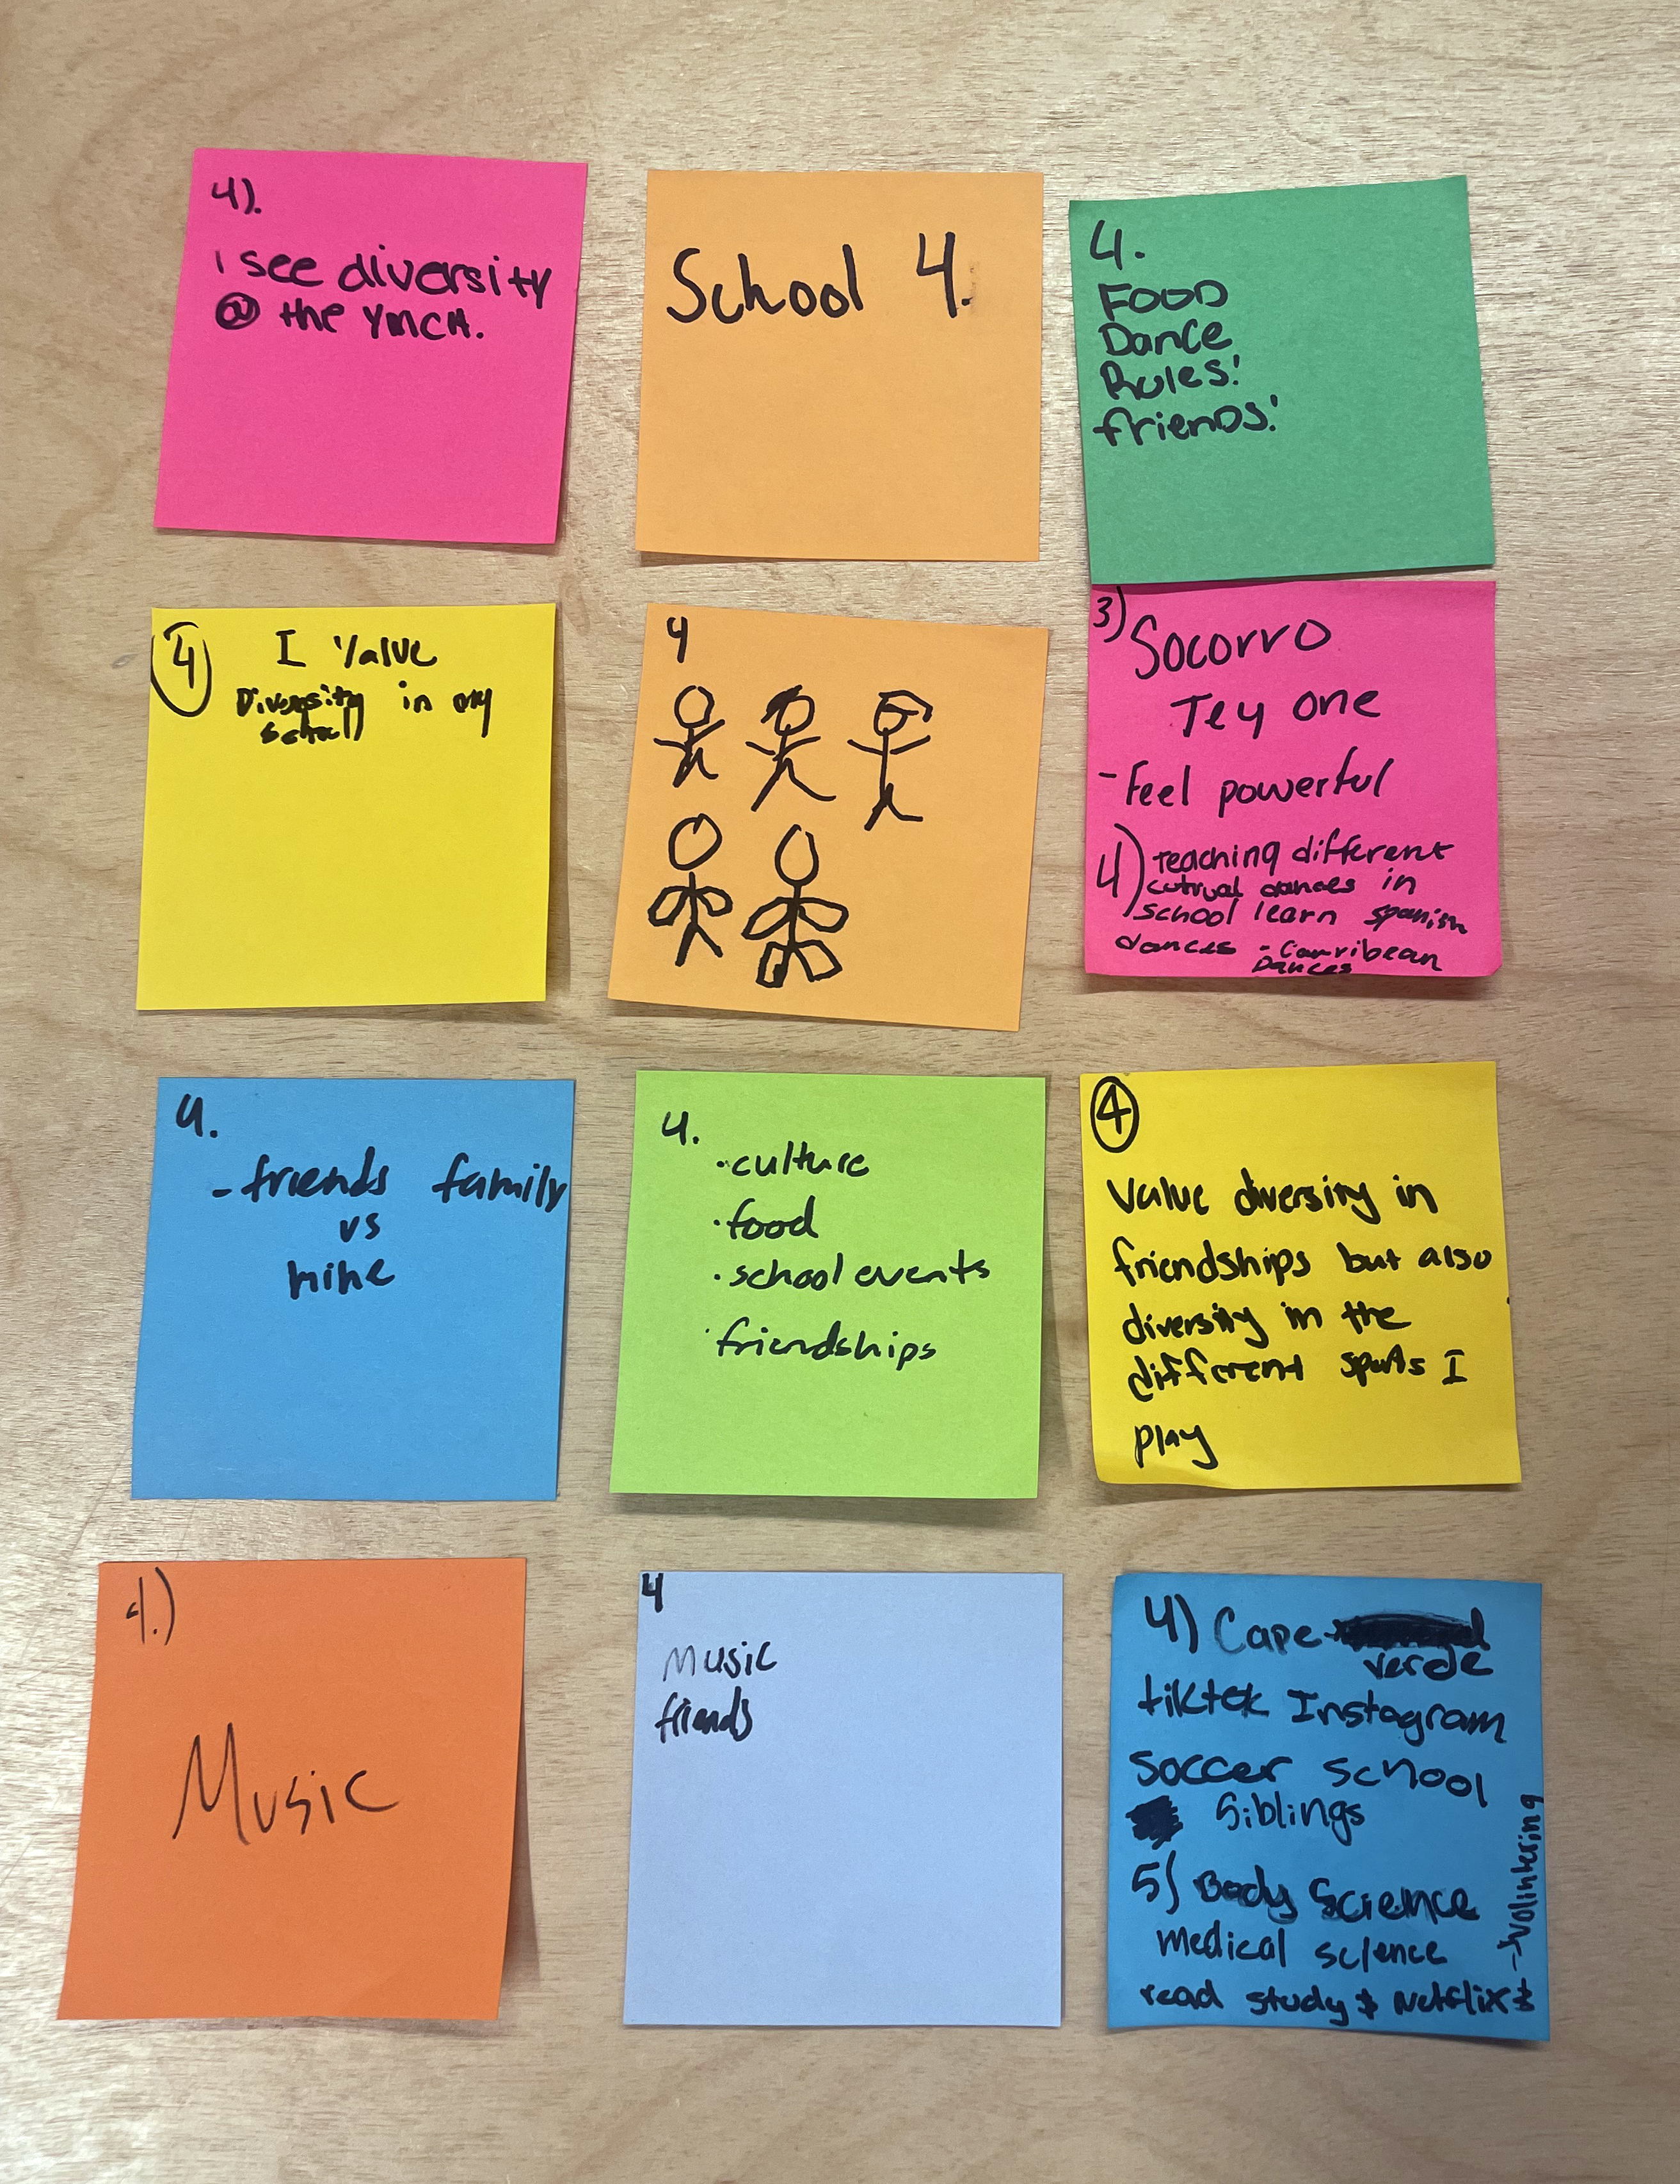 4).
i see diversity
@ the YMCA.
School 4.
4.
FOOD
Dance
Rules!
friends!
4
I Value
Diversity in my
school
4
3) Socorro
Tey one
- Feel powerful
4) teaching different
cutrual dances in
school learn spanish
dances - Carribean
Dances
4.
- friends family
vs
mine
4.
· culture
· food
· school events
· friendships
4
Value diversity in
friendships but also
diversity in the
different sports I
play
4.)
Music
4
Music
friends
4) Cape
verde
tiktok Instagram
soccer school
Siblings
5) Body Science
medical science
read study & Netflix &
- Volintering